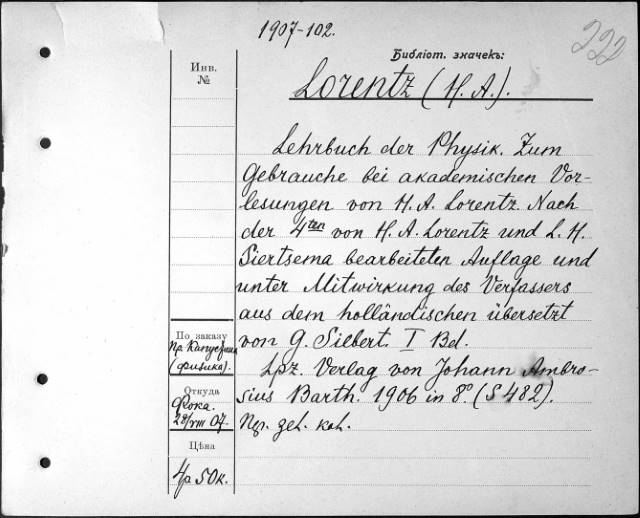 1907-102.
222
Библіот. значекъ:
Инв.
№
Lorentz (H. A.).
Lehrbuch der Physik. Zum
Gebrauche bei akademischen Vor-
lesungen von H. A. Lorentz. Nach
der 4ten von H. A. Lorentz und L. H.
Siertsema bearbeiteten Auflage und
unter Mitwirkung des Verfassers
aus dem holländischen übersetzt
von G. Siebert. I Bd.
Lpz. Verlag von Johann Ambro-
sius Barth. 1906 in 8º. (S 482).
По заказу
Пр. Капустина
(физика).
Откуда
Фока.
28/VIII 07.
Цѣна
4р 50к.